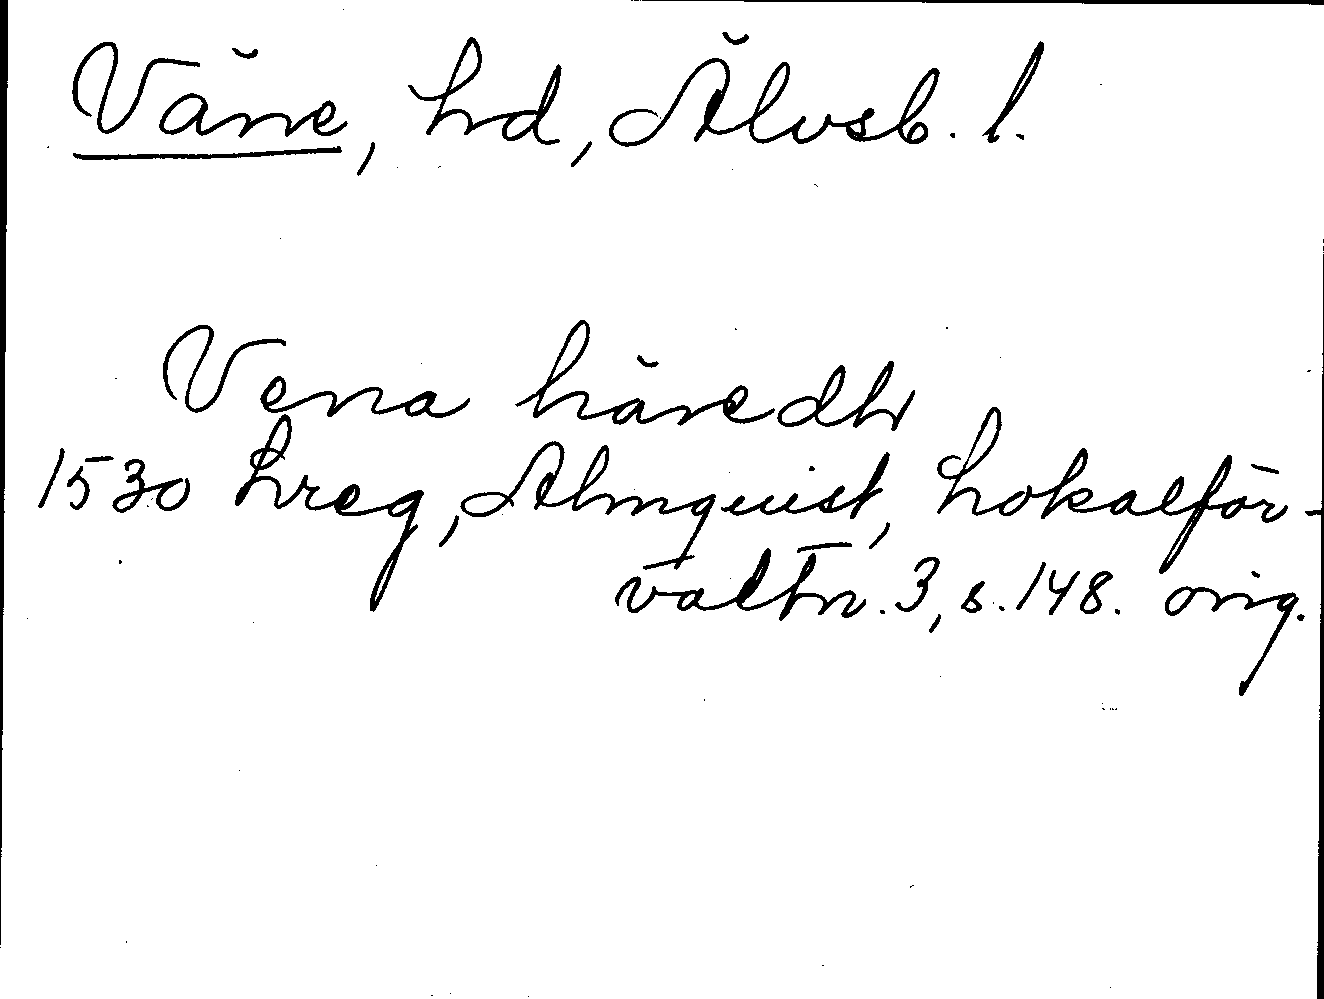 Väne, hd, Älvsb. l.
Vena häredh
1530 Lreg, Almquist, Lokalför-
valtn. 3, s. 148. orig.